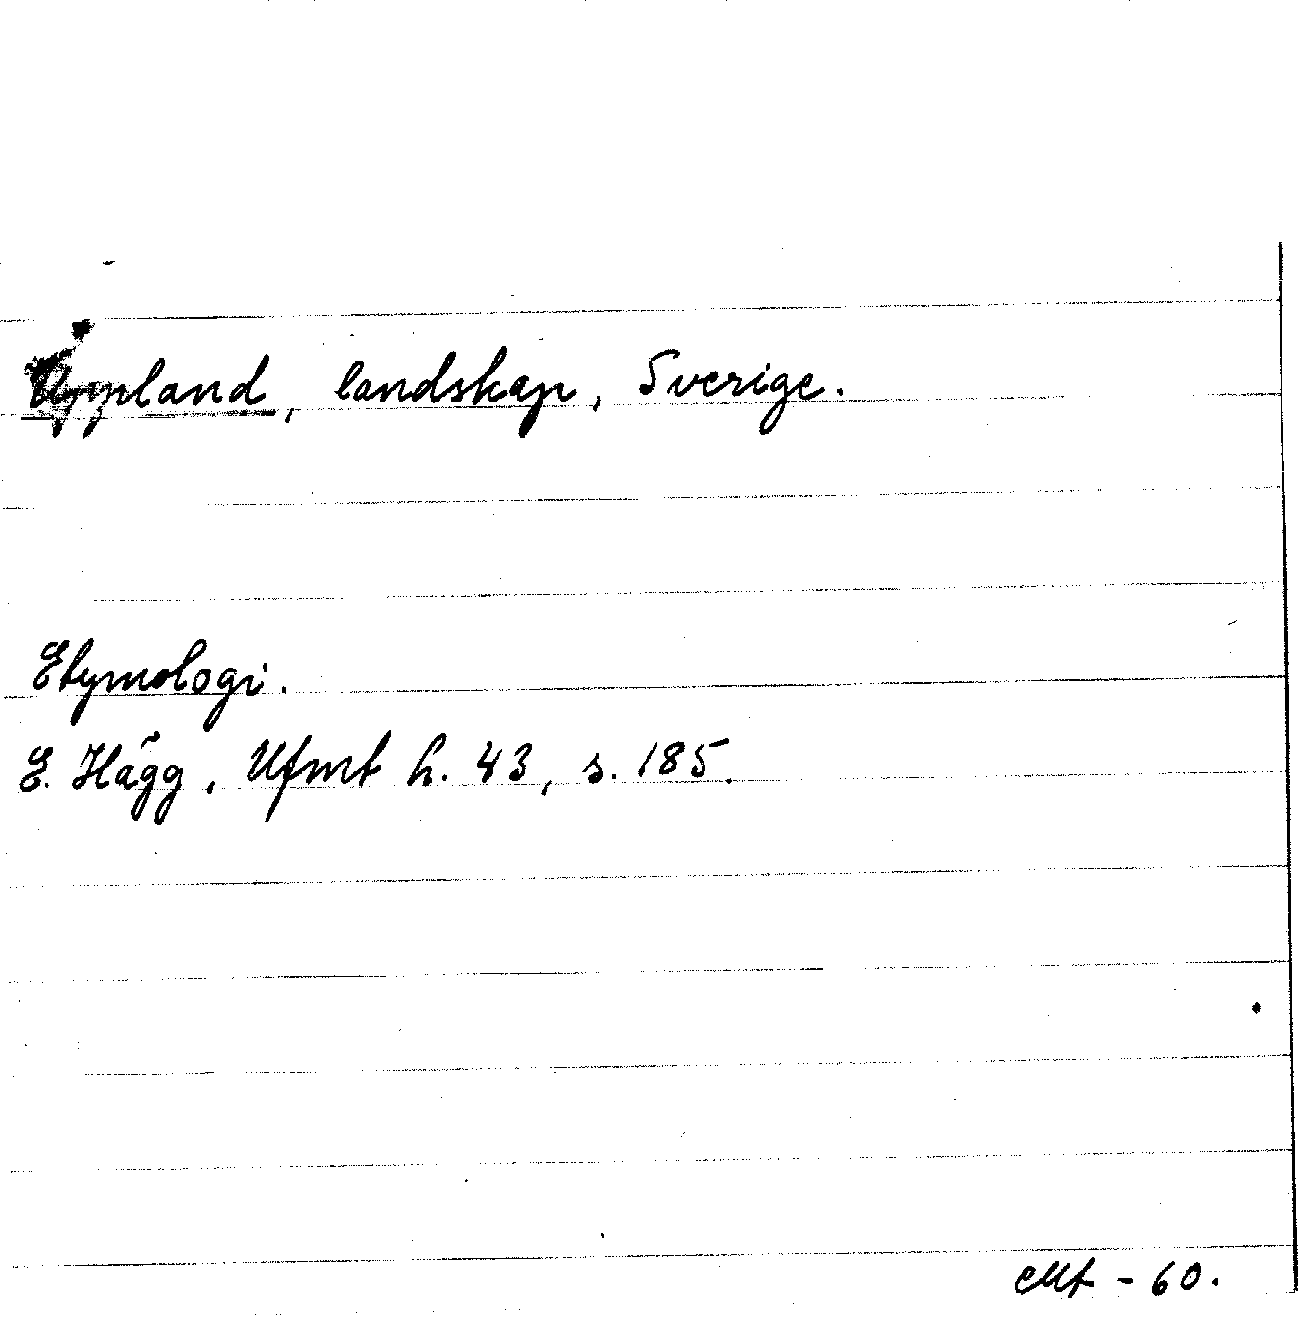 Uppland, landskap, Sverige.
Etymologi.
E. Hägg, Ufmt h. 43, s. 185.
Mt - 60.